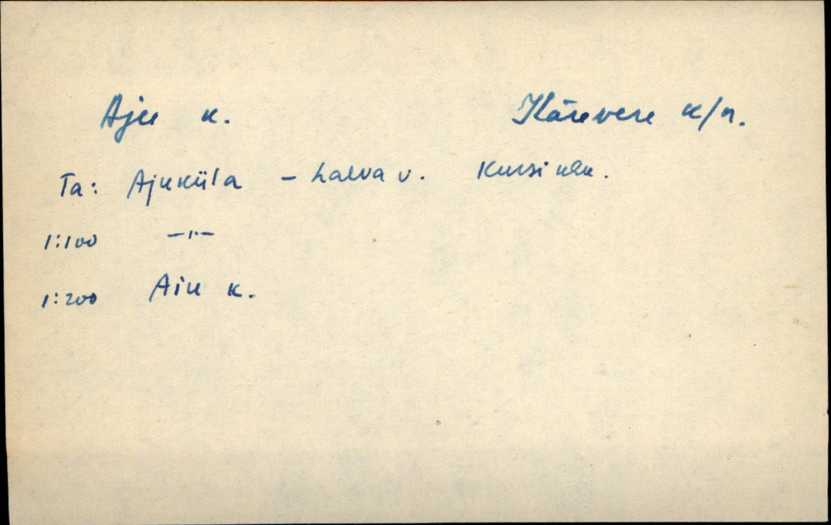 Aju k. Kärevere k/n.
Ta: Ajuküla - Laeva v. Kursi khk.
1:100 -"-
1:200 Aiu k.